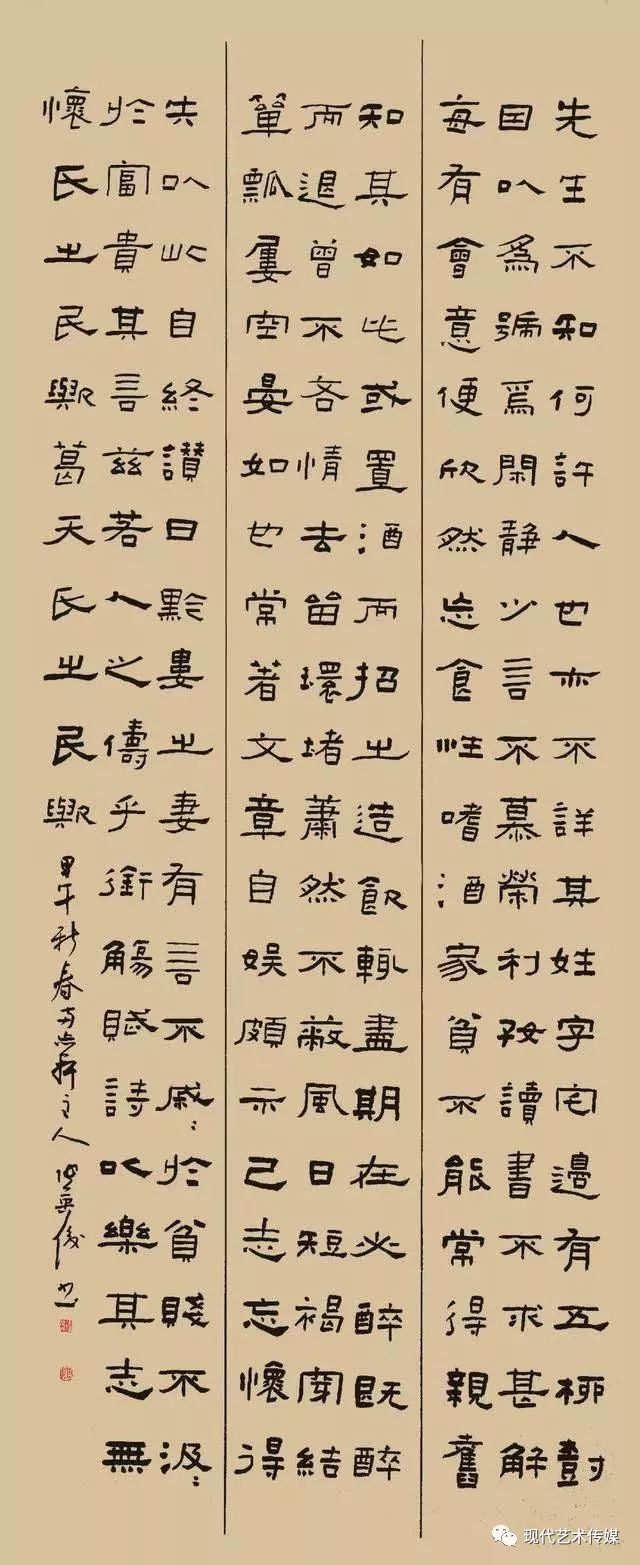 先生不知何許人也亦不詳其姓字宅邊有五柳樹
因以爲號焉閑靜少言不慕榮利好讀書不求甚解
每有會意便欣然忘食性嗜酒家貧不能常得親舊
知其如此或置酒而招之造飲輒盡期在必醉既醉
而退曾不吝情去留環堵蕭然不蔽風日短褐穿結
簞瓢屢空晏如也常著文章自娛頗示己志忘懷得
失以此自終讚曰黔婁之妻有言不戚々於貧賤不汲々
於富貴其言茲若人之儔乎銜觴賦詩以樂其志無
懷氏之民歟葛天氏之民歟 甲午新春 軒主人 書
现代艺术传媒